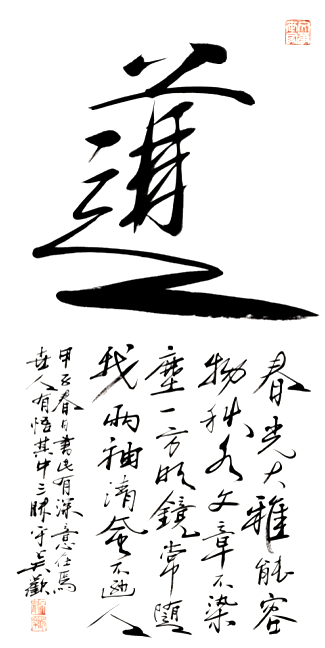 蓮
春光大雅能容
物秋水文章不染
塵一方明鏡常隨
我兩袖清風不遜人
甲子春日書此有深意在焉
世人有悟其中三昧乎吳歡